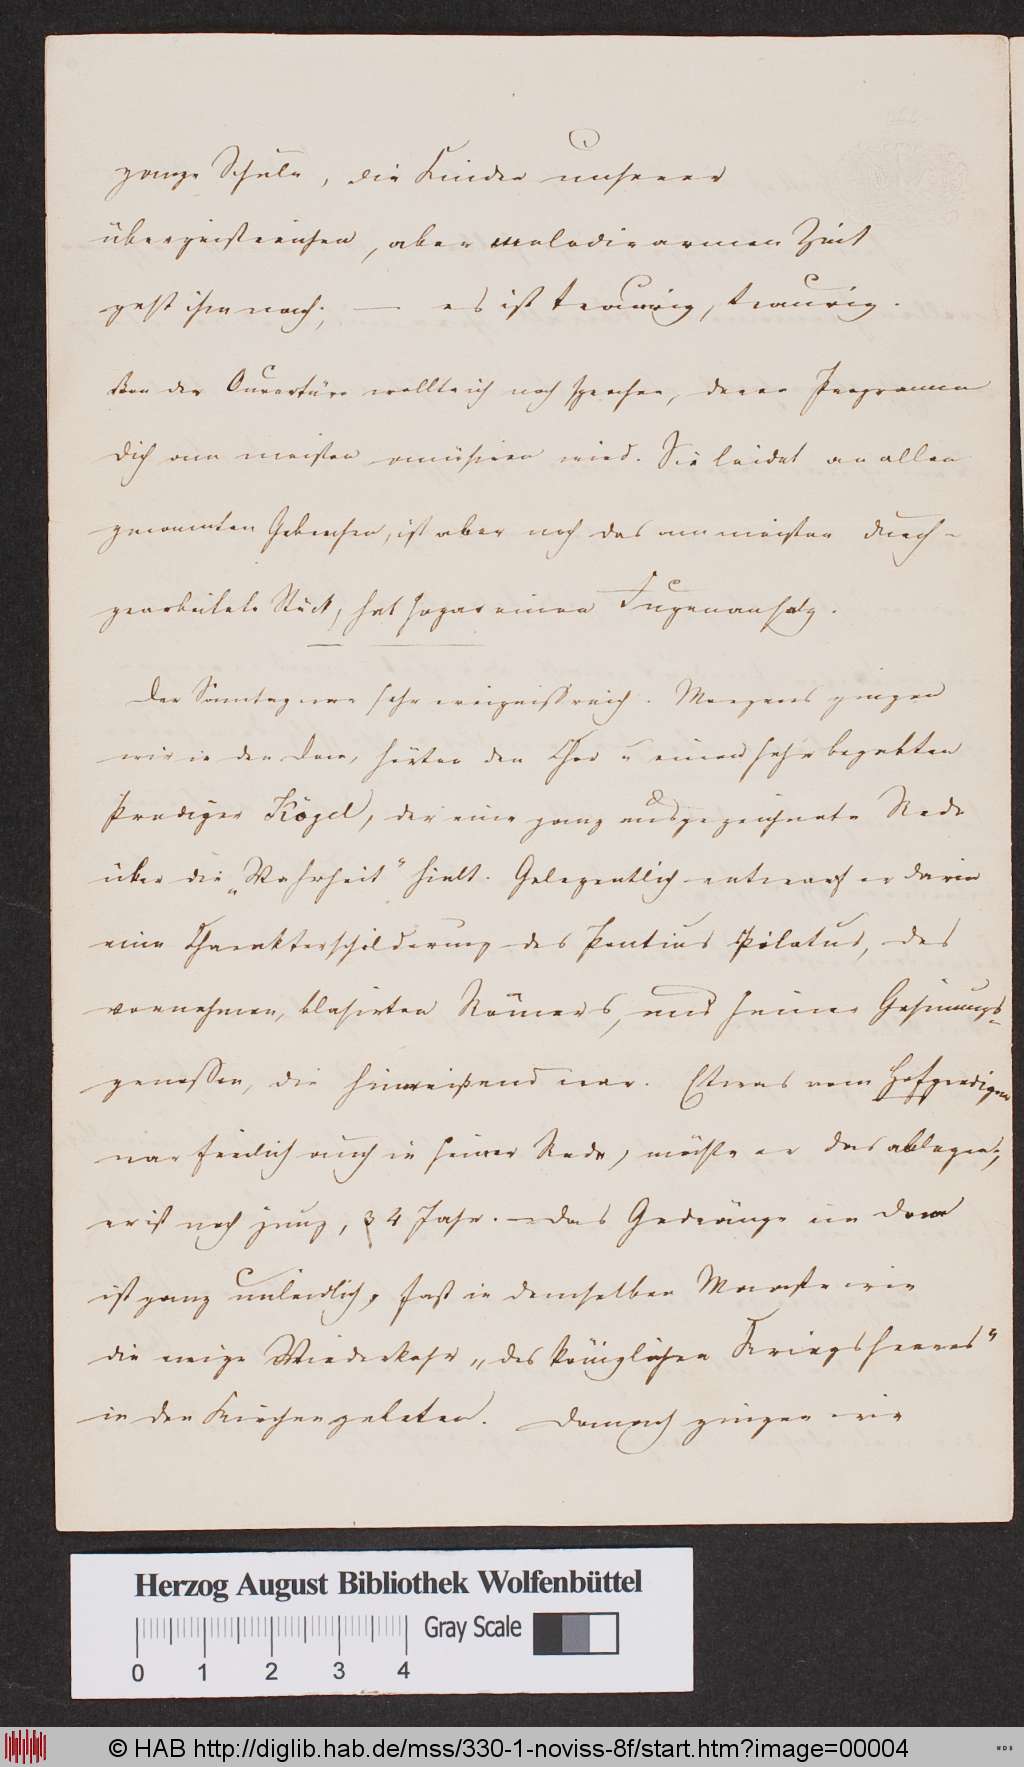 ganze Schule, die Kinder unserer
übergeistreichen, aber melodiearmen Zeit
geht ihm nach; — es ist traurig, traurig.
Von der Ouvertüre wollte ich noch sprechen, deren Programm
Dich am meisten amüsiren wird. Sie leidet an allen
genannten Gebrechen, ist aber noch das am meisten durch-
gearbeitete Stück, hat sogar einen Fugenansatz.
Der Sonntag war sehr ereignißreich. Morgens gingen
wir in den Dom, hörten den Chor u einen sehr begabten
Prediger Kögel, der eine ganz ausgezeichnete Rede
über die „Wahrheit" hielt. Gelegentlich entwarf er darin
eine Charakterschilderung des Pontius Pilatus, des
vornehmen, blasirten Römers, und seiner Gesinnungs-
genossen, die hinreißend war. Etwas vom Hofprediger
war freilich auch in seiner Rede, möchte er das ablegen;
er ist noch jung, 34 Jahr. – Das Gedränge im Dom
ist ganz unleidlich, fast in demselben Maaße wie
die ewige Wiederkehr „des königlichen Kriegsherrn"
in den Kirchengebeten. Darnach gingen wir
Herzog August Bibliothek Wolfenbüttel
Gray Scale
0 1 2 3 4
© HAB http://diglib.hab.de/mss/330-1-noviss-8f/start.htm?image=00004